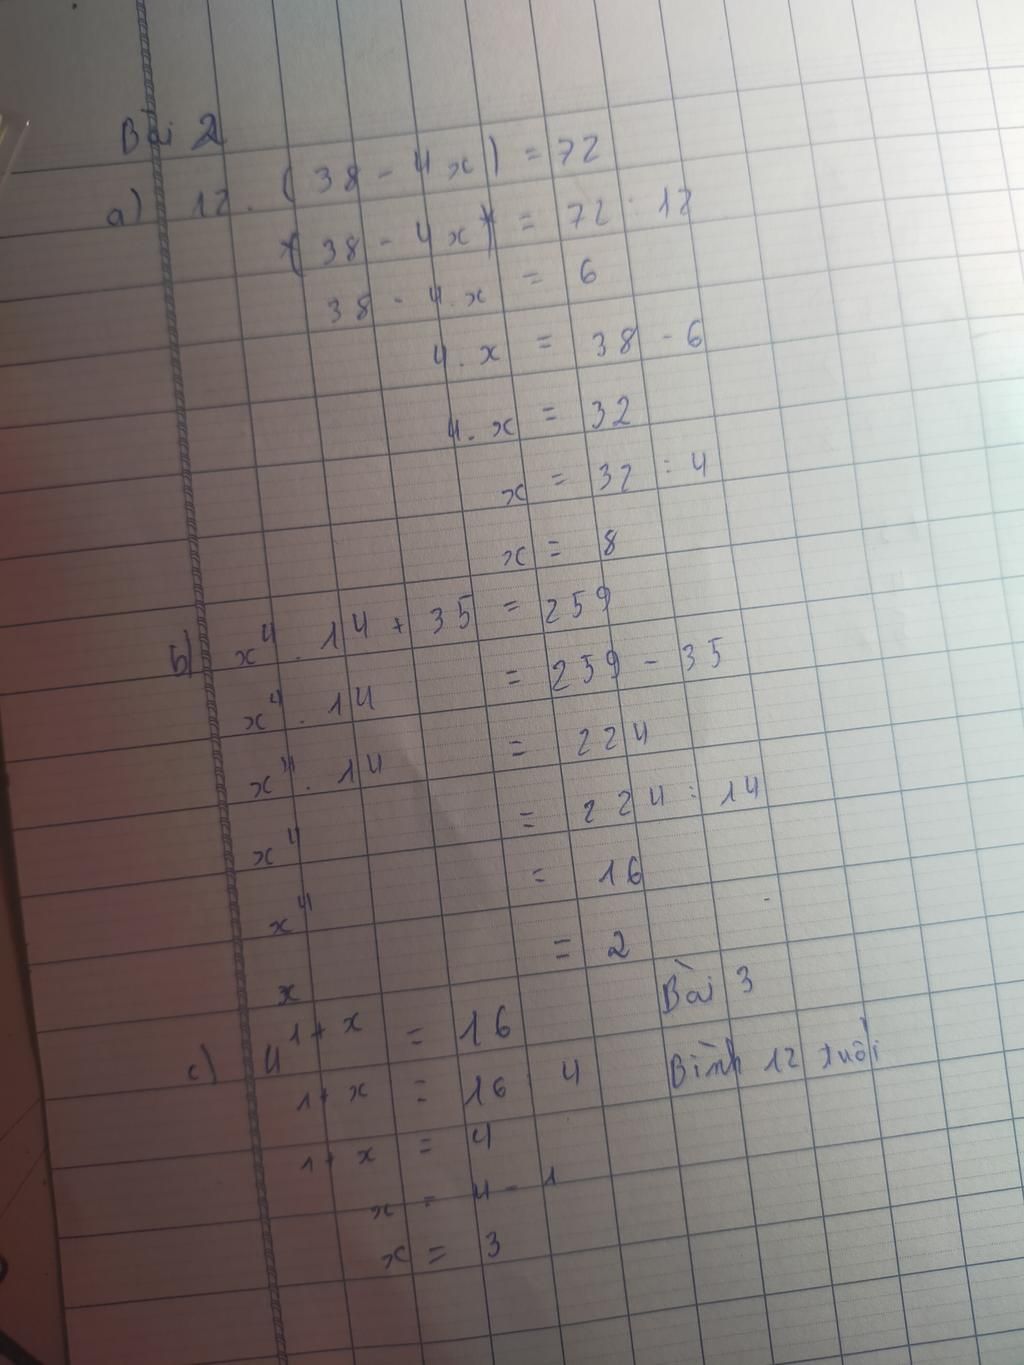 Bài 2
a) 12. (38 - 4x) = 72
(38 - 4x) = 72 : 12
38 - 4.x = 6
4.x = 38 - 6
4.x = 32
x = 32 : 4
x = 8
b) x⁴ . 14 + 35 = 259
x⁴ . 14 = 259 - 35
x⁴ . 14 = 224
x⁴ = 224 : 14
x⁴ = 16
x = 2
c) 4¹⁺ˣ = 16
1+x = 16 : 4
1+x = 4
x = 4 - 1
x = 3
Bài 3
Bình 12 tuổi